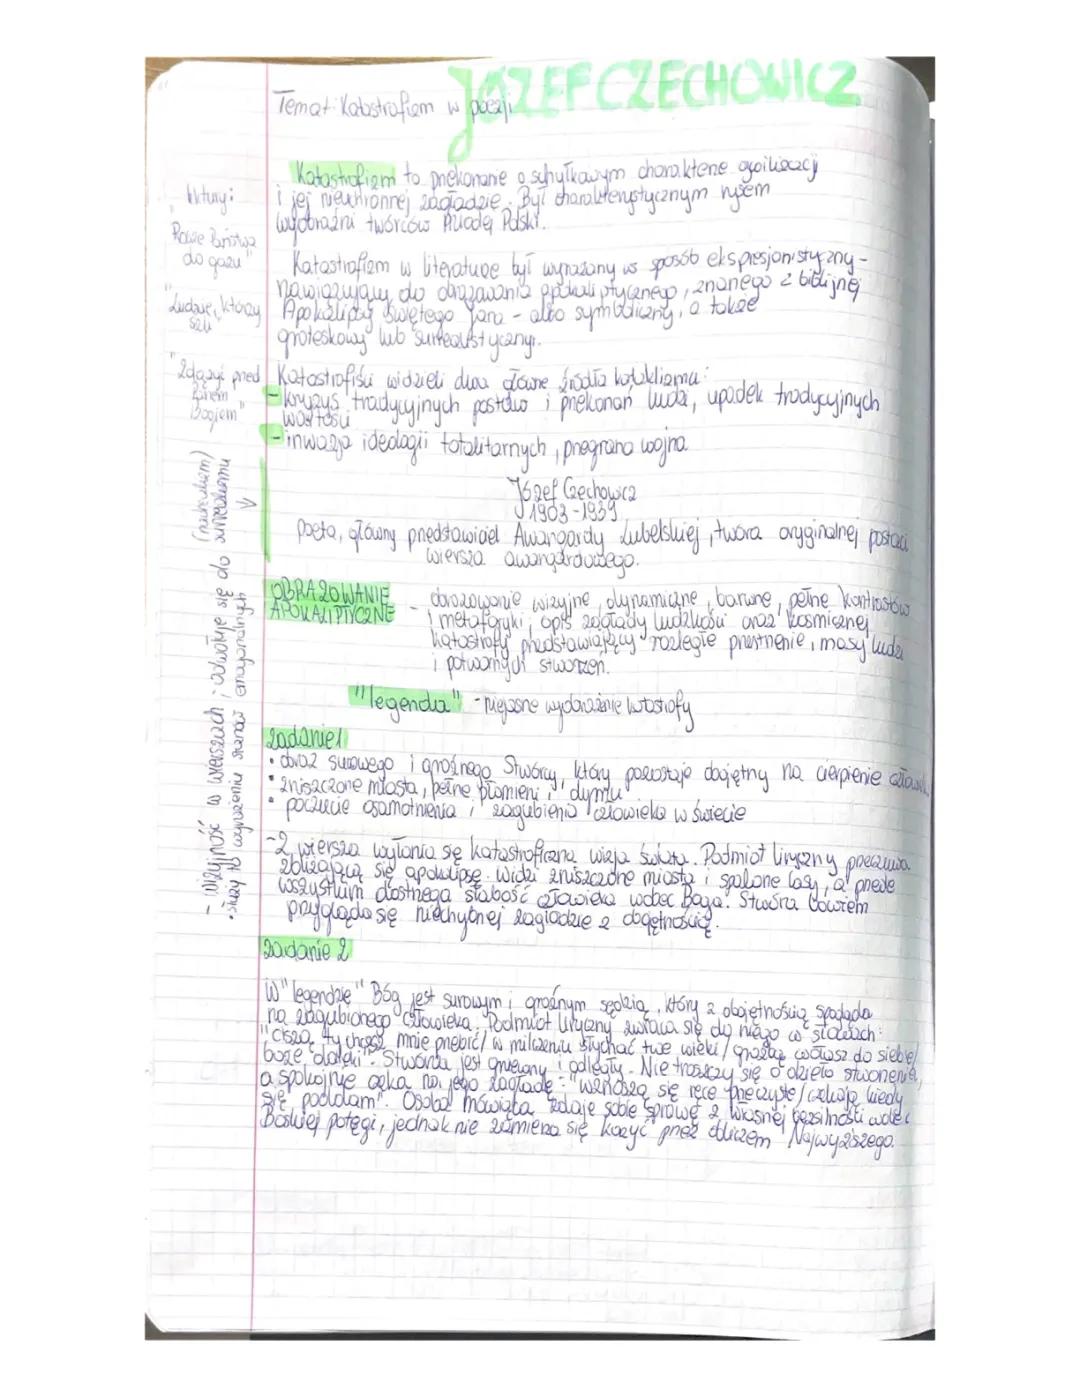 JÓZEF CZECHOWICZ
Temat: Katastrofizm w poezji
Katastrofizm to przekonanie o schyłkowym charakterze cywilizacji
i jej nieuchronnej zagładzie. Był charakterystycznym rysem
wyobraźni twórców Młodej Polski.
Katastrofizm w literaturze był wyrażany w sposób ekspresjonistyczny -
nawiązujący do obrazowania apokaliptycznego, znanego z biblijnej
Apokalipsy świętego Jana - albo symboliczny, a także
groteskowy lub surrealistyczny.
Katastrofiści widzieli dwa główne źródła kataklizmu:
- kryzys tradycyjnych postaw i przekonań ludzi, upadek tradycyjnych
wartości
- inwazja ideologii totalitarnych, przegrana wojna.
"Proszę Państwa
do gazu"
"Ludzie, którzy
szli"
"Zdążyć przed
Panem
Bogiem"
Józef Czechowicz
1903-1939
poeta, główny przedstawiciel Awangardy Lubelskiej, twórca oryginalnej postaci
wiersza awangardowego.
OBRAZOWANIE
APOKALIPTYCZNE
- obrazowanie wizyjne, dynamiczne, barwne, pełne kontrastów
i metaforyki, opis zagłady ludzkości oraz kosmicznej
katastrofy przedstawiający rozległe przestrzenie, masy ludzi
i potwornych stworzeń.
- wizyjność w wierszach; odwołuje się do (nadrealizm) surrealizmu
• służy to wyrażeniu stanów emocjonalnych
"legenda" - niejasne wyobrażenie katastrofy
zadanie 1
• obraz surowego i groźnego Stwórcy, który pozostaje obojętny na cierpienie
• zniszczone miasta, pełne płomieni i dymu
• poczucie osamotnienia i zagubienia człowieka w świecie
- Z wiersza wyłania się katastroficzna wizja świata. Podmiot liryczny przeczuwa
zbliżającą się apokalipsę. Widzi zniszczone miasta i spalone lasy, a przede
wszystkim dostrzega słabość człowieka wobec Boga. Stwórca bowiem
przygląda się niechybnej zagładzie z obojętnością.
zadanie 2
W "legendzie" Bóg jest surowym i groźnym sędzią, który z obojętnością spogląda
na zagubionego człowieka. Podmiot liryczny zwraca się do niego w słowach:
"ciszą ty chcesz mnie przebić/ w milczeniu słychać twe wieki/ wołasz do siebie/
boże daleki". Stwórca jest gniewny i odległy. Nie troszczy się o dzieło stworzenia,
a spokojnie czeka na jego zagładę: "wznoszą się ręce przeczyste/ czekają kiedy
się podłożom". Osoba mówiąca zdaje sobie sprawę z własnej bezsilności wobec
Boskiej potęgi, jednak nie zamierza się korzyć przed obliczem Najwyższego.